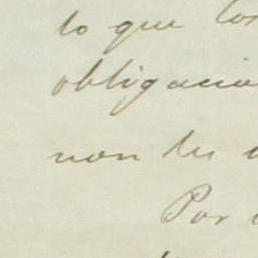 lo que los
obligacio
non les
Por